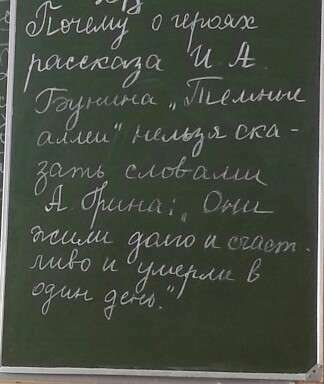 Почему о героях
рассказа И. А.
Бунина „Темные
аллеи" нельзя ска-
зать словами
А. Грина: „Они
жили долго и счаст-
ливо и умерли в
один день."